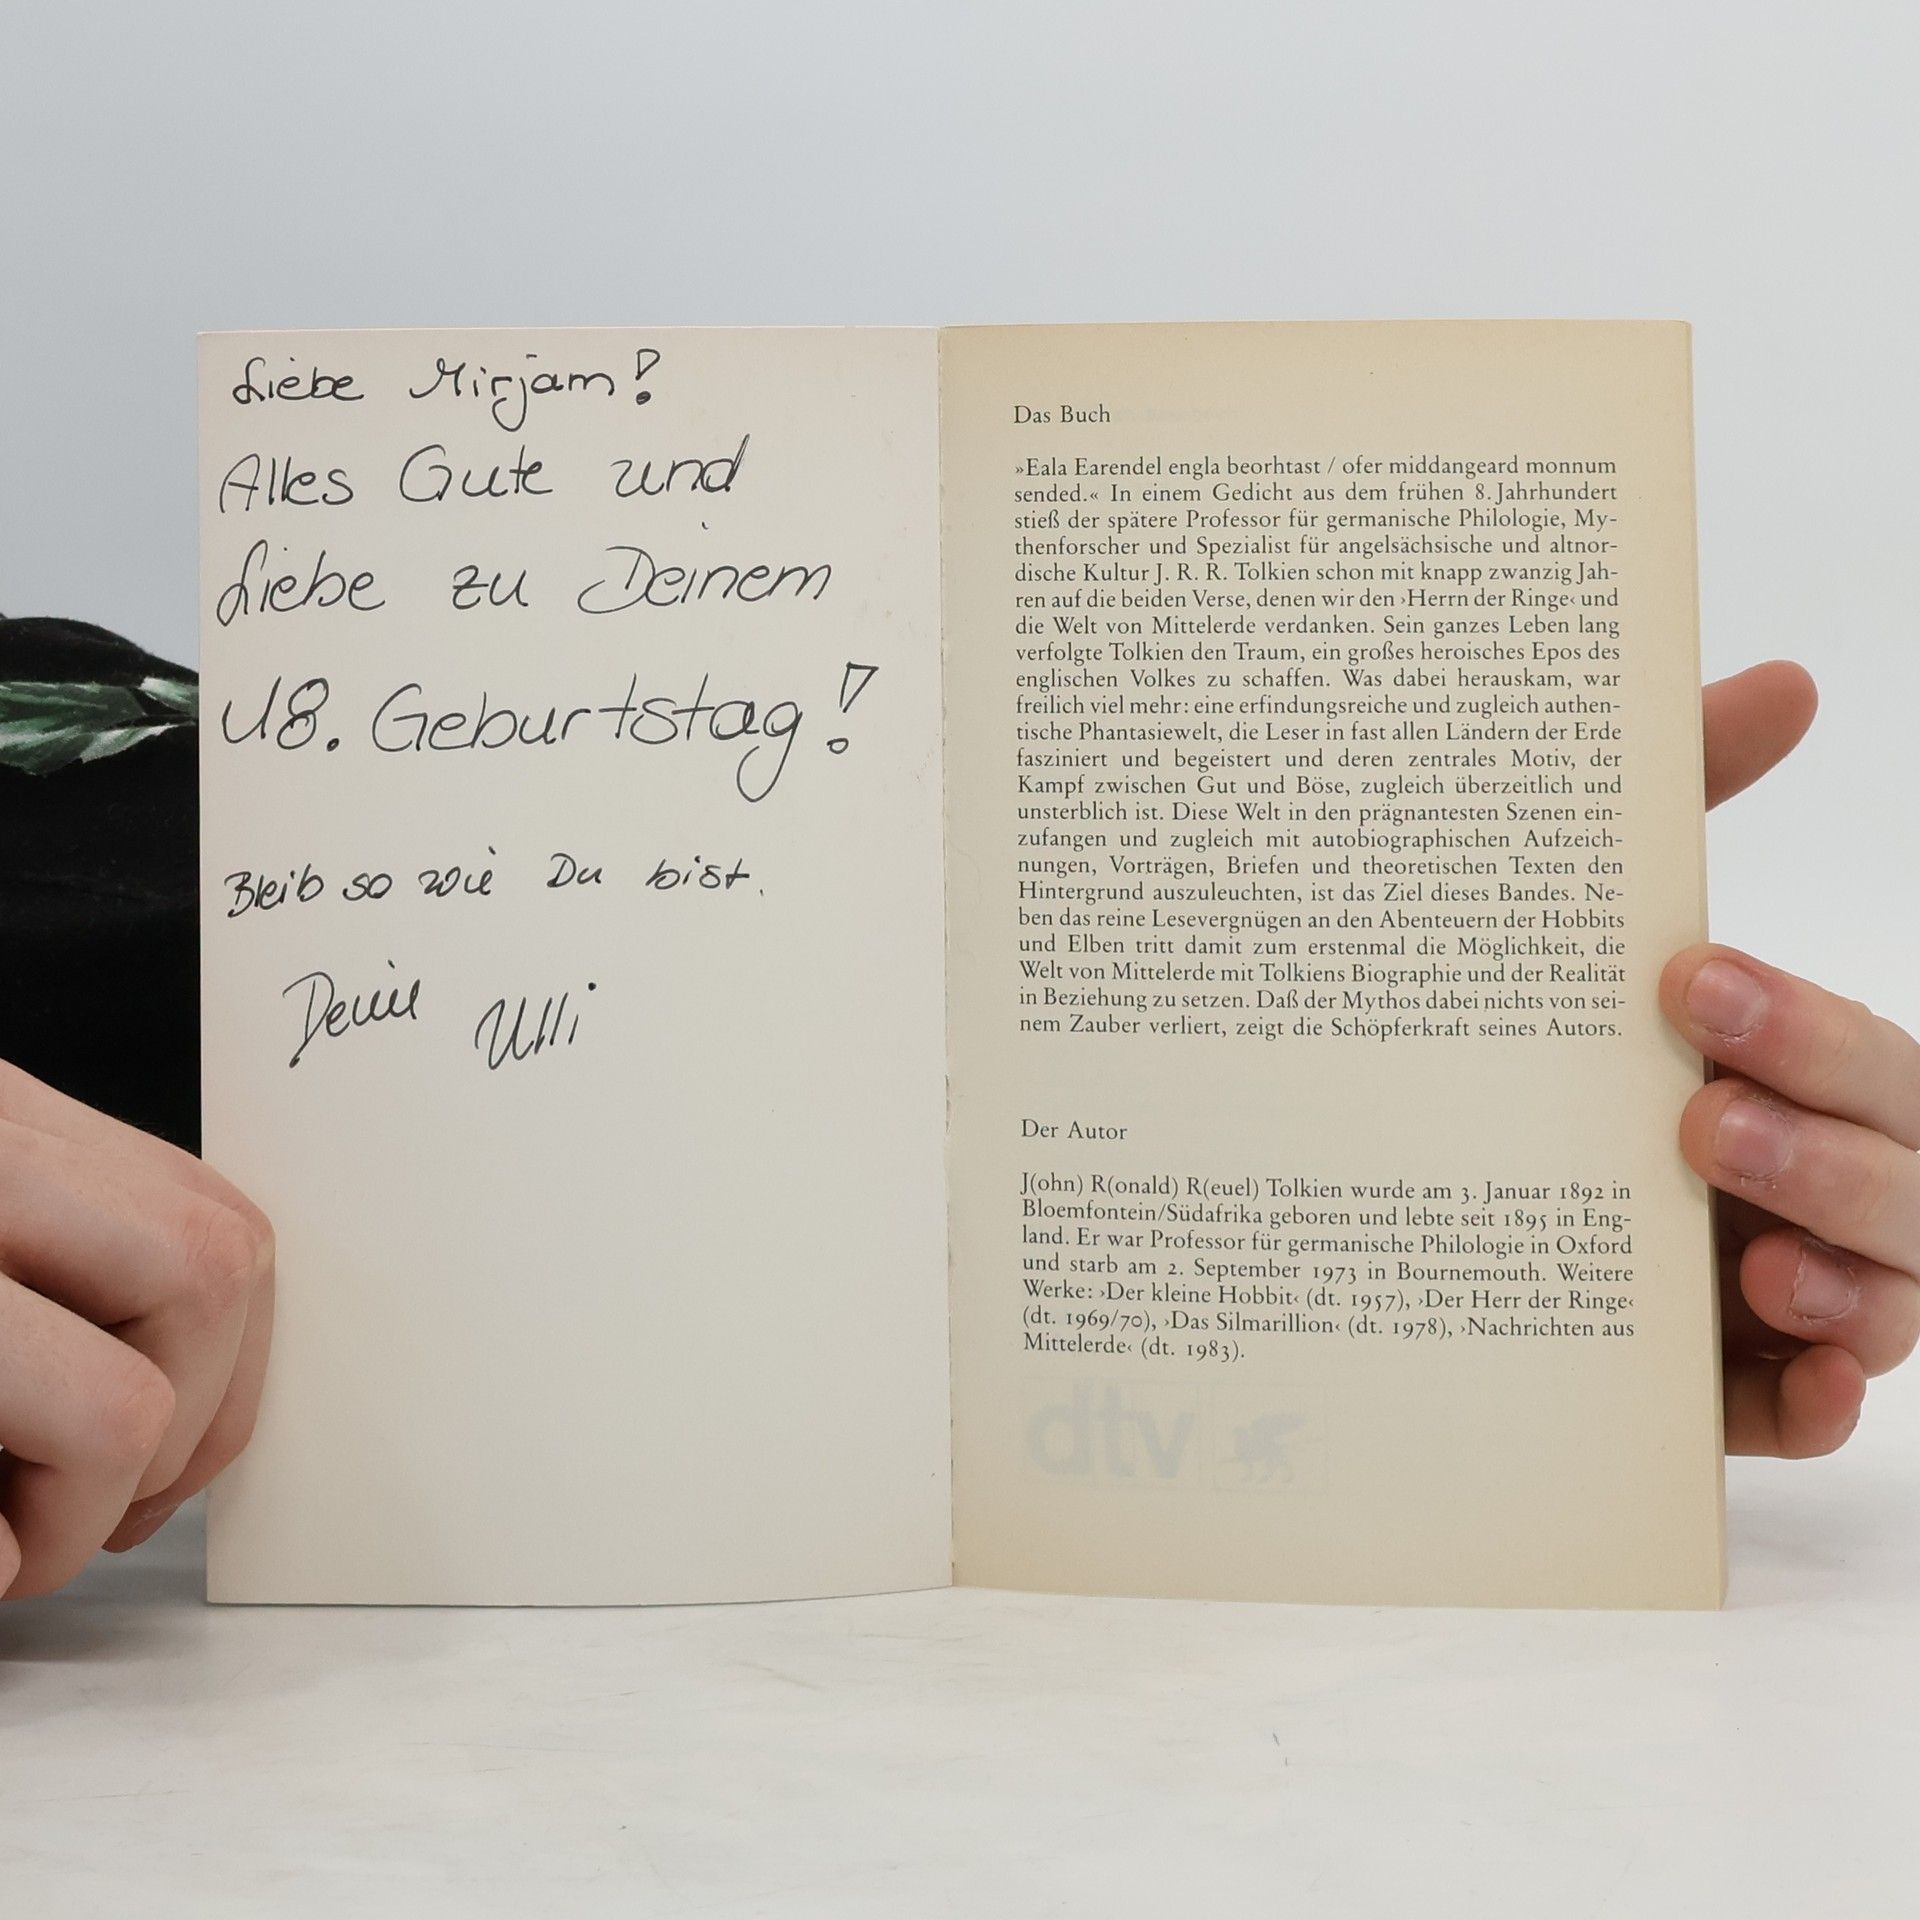 Liebe Mirjam!
Alles Gute und
Liebe zu Deinem
18. Geburtstag!
Bleib so wie Du bist.
Deine Ulli
Das Buch
»Eala Earendel engla beorhtast / ofer middangeard monnum
sended.« In einem Gedicht aus dem frühen 8. Jahrhundert
stieß der spätere Professor für germanische Philologie, My-
thenforscher und Spezialist für angelsächsische und altnor-
dische Kultur J. R. R. Tolkien schon mit knapp zwanzig Jah-
ren auf die beiden Verse, denen wir den ›Herrn der Ringe‹ und
die Welt von Mittelerde verdanken. Sein ganzes Leben lang
verfolgte Tolkien den Traum, ein großes heroisches Epos des
englischen Volkes zu schaffen. Was dabei herauskam, war
freilich viel mehr: eine erfindungsreiche und zugleich authen-
tische Phantasiewelt, die Leser in fast allen Ländern der Erde
fasziniert und begeistert und deren zentrales Motiv, der
Kampf zwischen Gut und Böse, zugleich überzeitlich und
unsterblich ist. Diese Welt in den prägnantesten Szenen ein-
zufangen und zugleich mit autobiographischen Aufzeich-
nungen, Vorträgen, Briefen und theoretischen Texten den
Hintergrund auszuleuchten, ist das Ziel dieses Bandes. Ne-
ben das reine Lesevergnügen an den Abenteuern der Hobbits
und Elben tritt damit zum erstenmal die Möglichkeit, die
Welt von Mittelerde mit Tolkiens Biographie und der Realität
in Beziehung zu setzen. Daß der Mythos dabei nichts von sei-
nem Zauber verliert, zeigt die Schöpferkraft seines Autors.
Der Autor
J(ohn) R(onald) R(euel) Tolkien wurde am 3. Januar 1892 in
Bloemfontein/Südafrika geboren und lebte seit 1895 in Eng-
land. Er war Professor für germanische Philologie in Oxford
und starb am 2. September 1973 in Bournemouth. Weitere
Werke: ›Der kleine Hobbit‹ (dt. 1957), ›Der Herr der Ringe‹
(dt. 1969/70), ›Das Silmarillion‹ (dt. 1978), ›Nachrichten aus
Mittelerde‹ (dt. 1983).
dtv